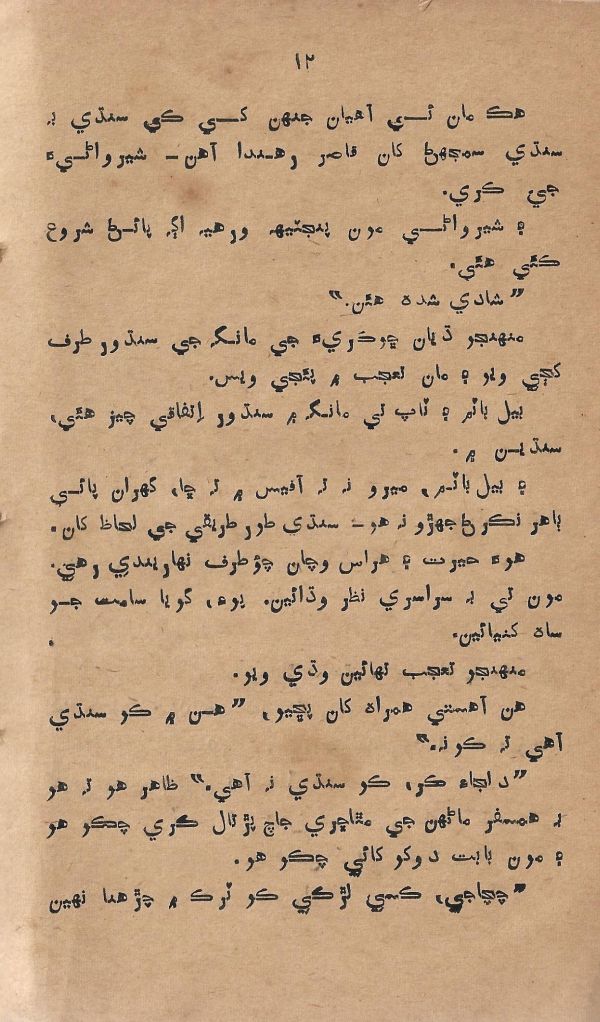 ١٢
هڪ مان ئي آهيان جنهن کي ڪي سنڌي بہ
سنڌي سمجهڻ کان قاصر رهندا آهن- شيروانيءَ
جي ڪري.
۽ شيرواني مون پنجٽيهہ ورهيہ اڳہ پائڻ شروع
ڪئي هئي.
”شادي شده هئن.“
منهنجو ڌيان ڇوڪريءَ جي مانگہ جي سنڌور طرف
کڄي ويو ۽ مان تعجب ۾ پئجي ويس.
بيل باٽم ۽ ٽاپ تي مانگہ ۾ سنڌور اِتفاقي چيز هئي،
سنڌين ۾.
۽ بيل باٽم، ميرو نہ تہ آفيس ۾ تہ ڇا، گهران پائي
ٻاهر نڪرڻ جهڙو نہ هو- سنڌي طور طريقي جي لحاظ کان.
هوءَ حيرت ۽ هراس وچان چؤطرف نهاريندي رهي.
مون تي بہ سراسري نظر وڌائين. پوءِ، گويا سامت جو
ساهہ کنيائين.
منهنجو تعجب نهائين وڌي ويو.
هن آهستي همراهہ کان پڇيو، ”هن ۾ ڪو سنڌي
آهي تہ ڪونہ.“
”دلجاءِ ڪر، ڪو سنڌي نہ آهي.“ ظاهر هو تہ هو
بہ همسفر ماڻهن جي مٿاڇري جاچ پڙتال ڪري چڪو هو
۽ مون بابت دوکو کائي چڪو هو.
”چچاجي، ڪسي لڙڪي کو ٽرڪ ۾ چڙهتا نهين